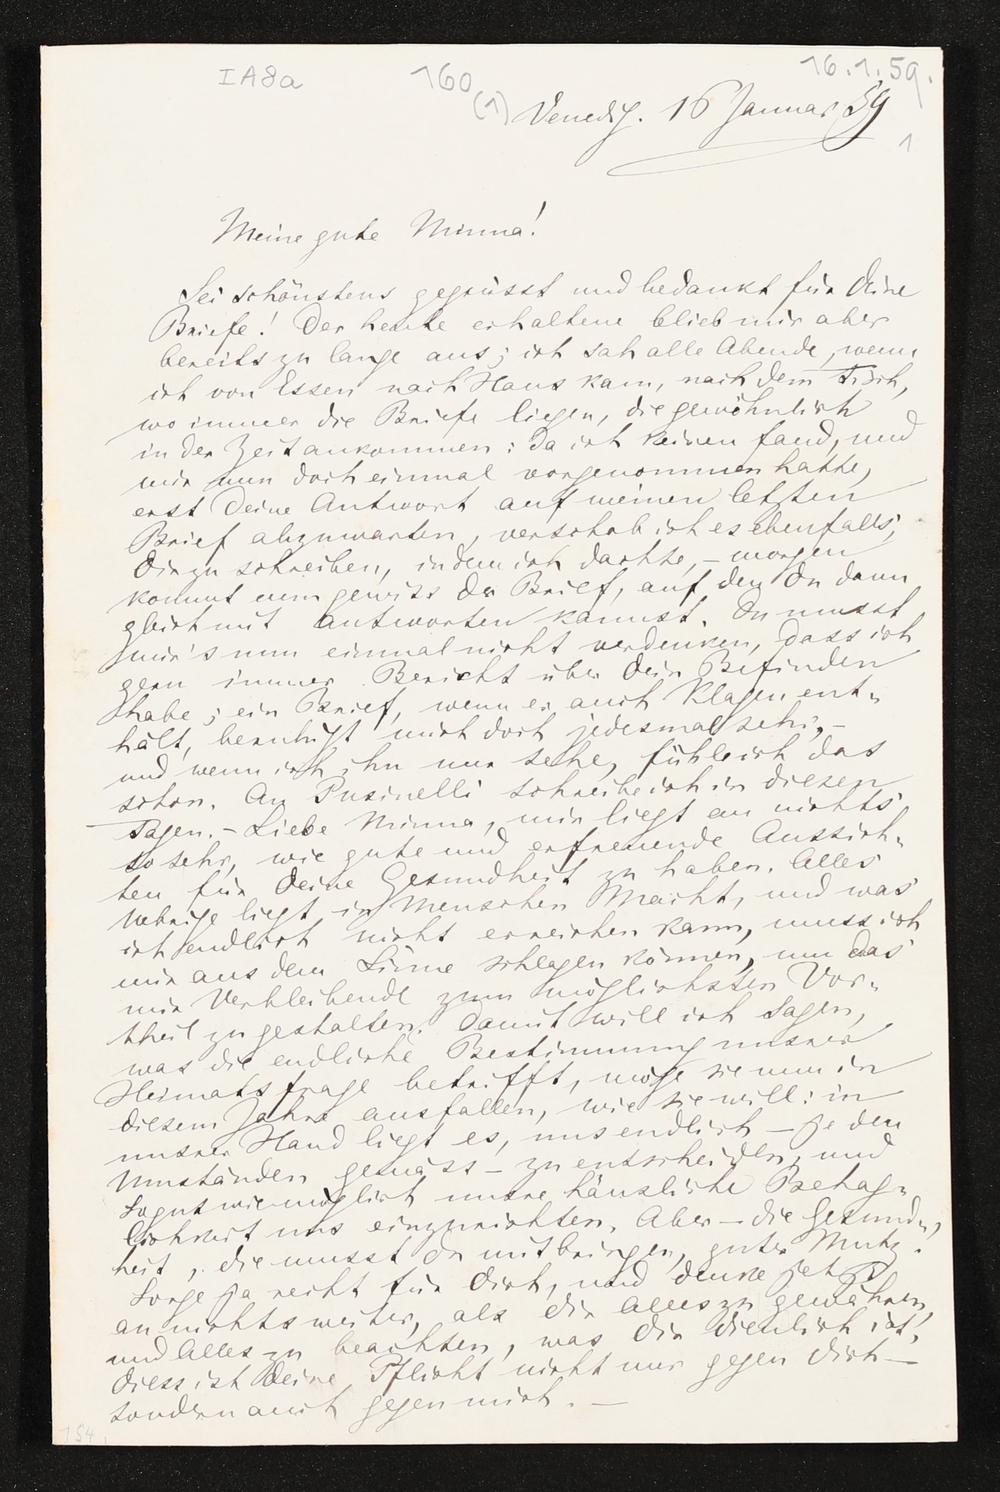 I A 8a
160
16.1.59.
(1) Venedig. 16 Januar 59
1
Meine gute Minna!
Sei schönstens gegrüsst und bedankt für Deine
Briefe! Der heute erhaltene blieb mir aber
bereits zu lange aus; ich sah alle Abende, wenn
ich von Essen nach Haus kam, nach dem Tisch,
wo immer die Briefe liegen, die gewöhnlich
in der Zeit ankommen: da ich keinen fand, und
mir nun doch einmal vorgenommen hatte,
erst Deine Antwort auf meinen letzten
Brief abzuwarten, verschob ich es ebenfalls,
Dir zu schreiben, indem ich dachte, – morgen
kommt nun gewiss der Brief, auf den Du dann
gleich mit antworten kannst. Du musst
mir's nun einmal nicht verdenken, dass ich
gern immer Bericht über Dein Befinden
habe; ein Brief, wenn er auch Klagen ent-
hält, beruhigt mich doch jedesmal sehr, –
und wenn ich ihn nur sehe, fühle ich das
schon. An Pusinelli schreibe ich in diesen
Tagen. – Liebe Minna, mir liegt an nichts
so sehr, wie gute und erfreuende Aussich-
ten für Deine Gesundheit zu haben. Alles
Uebrige liegt in Menschen Macht, und was
ich endlich nicht erreichen kann, muss ich
mir aus dem Sinne schlagen können, um das
mir Verbleibende zum möglichsten Vor-
theil zu gestalten. Damit will ich sagen,
was die endliche Bestimmung unsrer
Heimatsfrage betrifft, möge sie nun in
diesem Jahre ausfallen, wie sie will: in
unsrer Hand liegt es, uns endlich – je den
Umständen gemäss – zu entscheiden, und
so gut wie möglich unsre häusliche Behag-
lichkeit uns einzurichten. Aber – die Gesund-
heit, die musst Du mitbringen, guter Mutz!
Sorge ja recht für Dich, und denke jetzt
an nichts weiter, als Dir Alles zu gewähren,
und Alles zu beachten, was Dir dienlich ist.
Diess ist Deine Pflicht nicht nur gegen Dich –
sondern auch gegen mich. –
154.